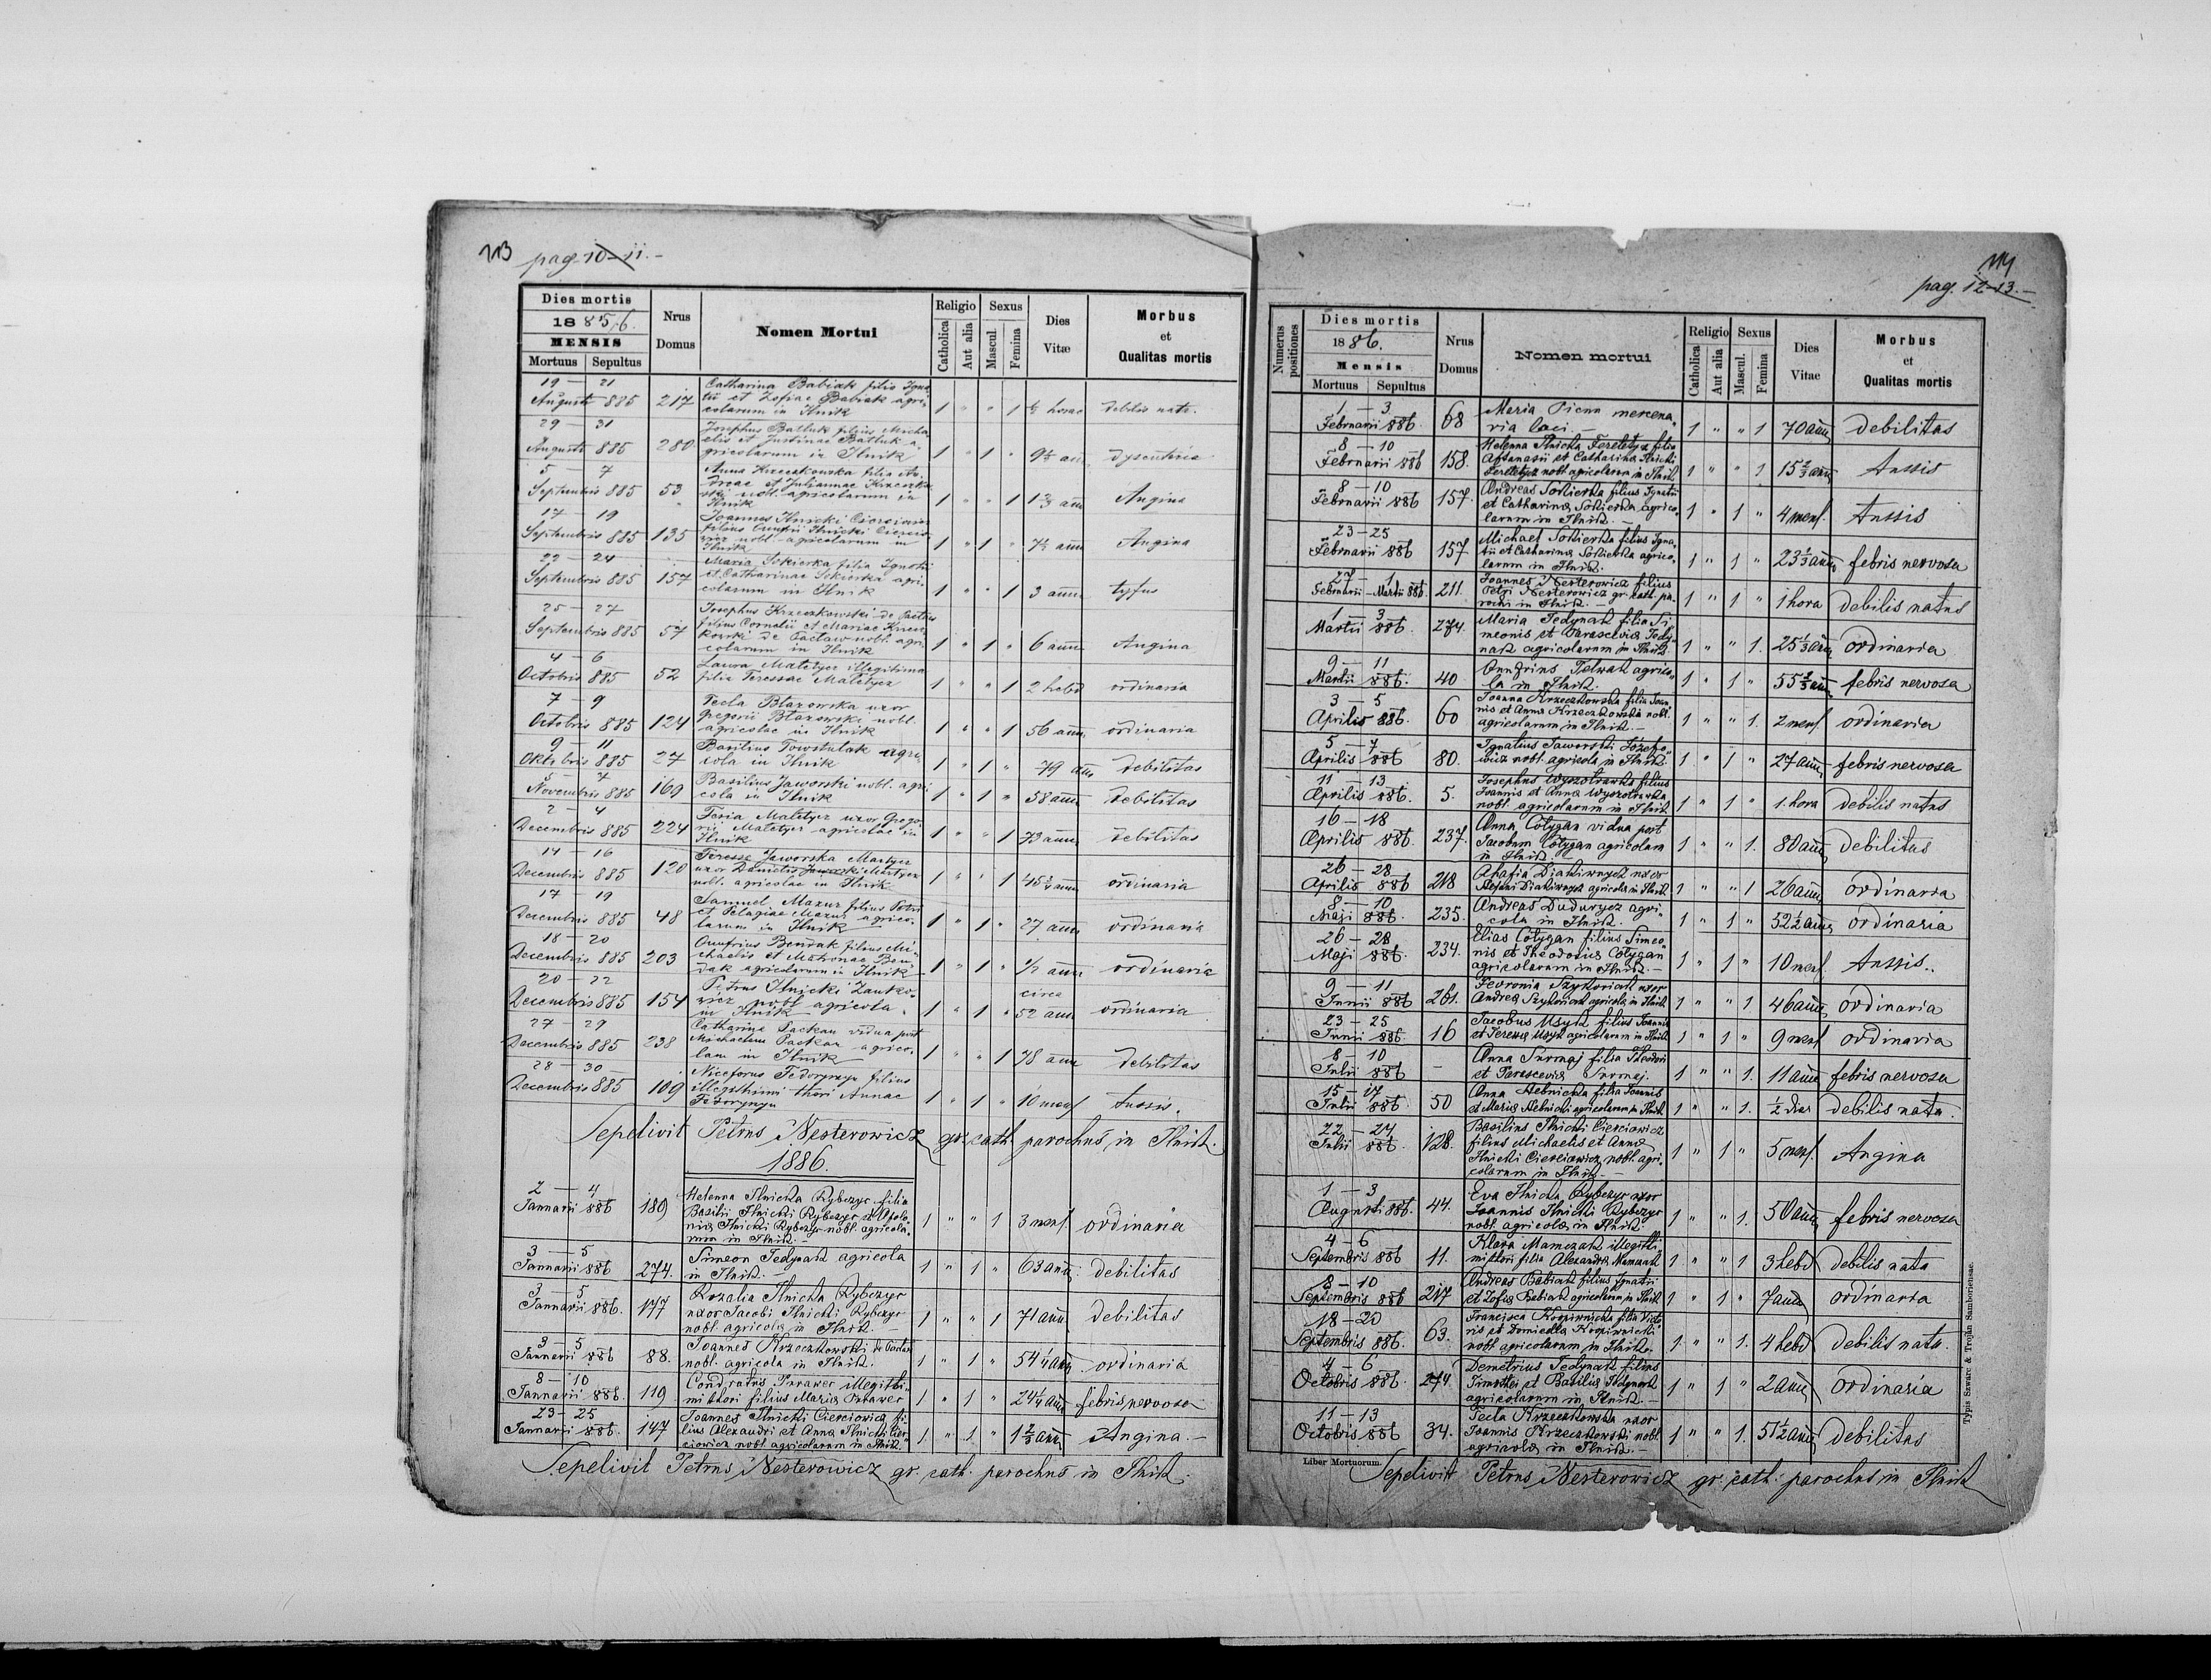 113 pag. 10–11.–
Dies mortis
1885/6.
MENSIS
Mortuus Sepultus
Nrus Domus
Nomen Mortui
Religio
Catholica Aut alia
Sexus
Mascul. Femina
Dies Vitæ
Morbus et Qualitas mortis
19 — 21
Augusti 885 217 Catharina Babiak filia Igna-
tii et Zofiae Babiak agri-
colarum in Ilnik 1 " " 1 ½ horae debilis nata.
29 — 31
Augusti 885 280 Josephus Batluk filius Micha-
elis et Justinae Batluk a-
gricolarum in Ilnik 1 " 1 " 9½ an dysenteria
5 — 7
Septembris 885 53 Anna Krzeczkowska filia An-
dreae et Juliannae Krzeczko-
wski nobl. agricolarum in
Ilnik 1 " " 1 ann Angina
17 — 19
Septembris 885 135 Joannes Ilnicki Cierciowicz
filius Onufrii Ilnicki Ciercio-
wicz nobl. agricolarum in
Ilnik 1 " 1 " 7½ ann Angina
22 — 24
Septembris 885 157 Maria Sokierka filia Ignatii
et Catharinae Sokierka agri-
colarum in Ilnik 1 " " 1 3 ann typus
25 — 27
Septembris 885 57 Josephus Krzeczkowski de
filius Cornelii et Mariae Krzecz-
kowski de nobl. agri-
colarum in Ilnik 1 " 1 " 6 ann Angina
4 — 6
Octobris 885 52 Laura Maletycz illegitima
filia Teressae Maletycz 1 " " 1 2 hebd ordinaria
7 — 9
Octobris 885 124 Tecla Błazowska uxor
Gregorii Błazowski nobl.
agricolae in Ilnik 1 " " 1 56 ann. ordinaria
9 — 11
Oktobris 885 27 Basilius Towstulak agri-
cola in Ilnik 1 " 1 " 79 ann debilitas
5 — 7
Novembris 885 169 Basilius Jaworski nobl. agri
cola in Ilnik 1 " 1 " 58 ann debilitas
2 — 4
Decembris 885 224 Maletycz uxor Grego-
rii Maletycz agricolae in
Ilnik 1 " " 1 73 ann debilitas
14 — 16
Decembris 885 120 Teressa Jaworska Martycz
uxor Danielis Jaworski Martycz
nobl. agricolae in Ilnik 1 " " 1 ann ordinaria
17 — 19
Decembris 885 48 Samuel Mazur filius Petri
et Pelagiae Mazur agrico-
larum in Ilnik 1 " 1 " 27 ann ordinaria
18 — 20
Decembris 885 203 Onufrius Bendak filius Mi-
chaelis et Matronae Ben-
dak agricolarum in Ilnik 1 " 1 " ½ ann ordinaria
20 — 22
Decembris 885 154 Petrus Ilnicki Zanko-
wicz nobl agricola
in Ilnik 1 " 1 " circa
52 ann ordinaria
27 — 29
Decembris 885 238 Catharina Packan vidua post
Michaelem Packan agrico-
lam in Ilnik 1 " " 1 78 ann debilitas
28 — 30
Decembris 885 109 Niceforus Fedorynyn filius
illegithimi thori Annae
Fedorynyn 1 " 1 " 10 mens tussis.
Sepelivit Petrus Nesterowicz gr. cath. parochus in Ilnik.
1886.
2 — 4
Januarii 886 189 Helenna Ilnicka Rybczyc filia
Basilii Ilnicki Rybczyc et Apolo-
niæ Ilnicki Rybczyc nobl. agricola-
rum in Ilnik.– 1 " " 1 3 mens. ordinaria
3 — 5
Januarii 886 274. Simeon Jedynak agricola
in Ilnik. 1 " 1 " 63 ann. debilitas
3 — 5
Januarii 886. 177 Rozalia Ilnicka Rybczyc
uxor Jacobi Ilnicki Rybczyc
nobl. agricolæ in Ilnik. 1 " " 1 71 ann. debilitas
3 — 5
Januarii 886 88. Joannes Krzeczkowski de
nobl. agricola in Ilnik. 1 " 1 " 54 ¼ ann ordinaria
8 — 10
Januarii 886. 119 Condratus illegithi-
mi thori filius Mariæ 1 " 1 " 24 ¼ ann febris nervosa
23 — 25
Januarii 886. 147 Joannes Ilnicki Cierciowicz fi-
lius Alexandri et Annæ Ilnicki Cier-
ciowicz nobl agricolarum in Ilnik. 1. " 1 " 1 ⅔ ann Angina.–
Sepelivit Petrus Nesterowicz gr. cath. parochus in Ilnik.
114
pag. 12–13.–
Numerus positiones
Dies mortis
1886.
Mensis
Mortuus Sepultus
Nrus Domus
Nomen mortui
Religio
Catholica Aut alia
Sexus
Mascul. Femina
Dies Vitae
Morbus et Qualitas mortis
1 — 3
Februarii 886. 68 Maria mercena-
ria loci.– 1 " " 1 70 ann debilitas
8 — 10
Februarii 886 158. Helenna Ilnicka Fereletycz filia
Aphanasii et Catharinæ Ilnicki
Fereletycz nobl agricolarum in Ilnik 1 " " 1 ann Tussis
8 — 10
Februarii 886 157. Andreas Sokierka filius Ignatii
et Catharinæ Sokierka agrico-
larum in Ilnik.– 1 " 1 " 4 mens. Tussis
23 — 25
Februarii 886 157 Michael Sokierka filius Igna-
tii et Catharinæ Sokierka agrico-
larum in Ilnik. 1 " 1 " 23 ⅓ ann febris nervosa
27 — 1
Februarii – Martii 886. 211. Joannes Nesterowicz filius
Petri Nesterowicz gr. cath. pa-
rochi in Ilnik.– 1 " 1 " 1 hora debilis natus
1 — 3
Martii 886. 274. Maria Jedynak filia Si-
meonis et Parasceviæ Jedy-
nak agricolarum in Ilnik. 1 " " 1. 25 ⅓ ann ordinaria
9 — 11
Martii 886. 40 Onufrius Telwak agrico-
la in Ilnik. 1 " 1 " 55 ann febris nervosa
3 — 5
Aprilis 886. 60 Joanna Krzeczkowska filia Joan-
nis et Annæ Krzeczkowska nobl.
agricolarum in Ilnik.– 1 " " 1. 2 mens. ordinaria
5 — 7
Aprilis 886 80. Ignatius Jaworski Józefo-
wicz nobl. agricola in Ilnik. 1 " 1 " 27 ann febris nervosa
11 — 13
Aprilis 886. 5. Josephus Wysoczanska filius
Joannis et Annæ Wysoczanska
nobl. agricolarum in Ilnik 1 " 1 " 1. hora debilis natus
16 — 18
Aprilis 886. 237. Anna Cołygan vidua post
Jacobum Cołygan agricolam
in Ilnik. 1 " " 1. 80 ann debilitas
26 — 28
Aprilis 886 218 Ahafia Diakiwnycz uxor
Diakiwnycz agricolæ in Ilnik 1 " " 1 26 ann ordinaria
8 — 10
Maji 886. 235. Andreas Dudurycz agri-
cola in Ilnik. 1 " 1 " 52 ½ ann ordinaria
26 — 28
Maji 886. 234. Elias Cołygan filius Simeo-
nis et Theodosiæ Cołygan
agricolarum in Ilnik.– 1 " 1 " 10 mens. Tussis..
9 — 11
Junii 886 261. Fevronia Szykoriak uxor
Andreæ Szykoriak agricolæ in Ilnik 1 " " 1 46 ann ordinaria
23 — 25
Junii 886. 16 Jacobus Usyk filius Joannis
et Teressæ Usyk agricolarum in Ilnik 1 " 1 " 9 mens. ordinaria
8 — 10
Julii 886 – Anna Surmaj filia Theodori
et Parasceviæ Surmaj. 1 " " 1. 11 ann febris nervosa
15 — 17
Julii 886. 50 Anna Hebnicka filia Joannis
et Mariæ Hebnicki agricolarum in Ilnik 1 " " 1. ½ diæs debilis nata.
22 — 24
Julii 886. 128. Basilius Ilnicki Cierciowicz
filius Michaelis et Annæ
Ilnicki Cierciowicz nobl. agri-
colarum in Ilnik.– 1 " 1 " 5 mens. Angina
1 — 3
Augusti 886. 44. Eva Ilnicka Rybczyc uxor
Joannis Ilnicki Rybczyc
nobl. agricolæ in Ilnik. 1 " " 1. 50 ann febris nervosa
4 — 6
Septembris 886 11. Klara Mamczak illegithi-
mi thori filia Alexandræ Mamczak 1 " " 1 3 hebd debilis nata
8 — 10
Septembris 886 217 Andreas Babiak filius Ignatii
et Zofiæ Babiak agricolarum in Ilnik 1 " 1 " 7 ann ordinaria
18 — 20
Septembris 886. 63. Francisca Kropiwnicka filia Victo-
ris et Domicella Kropiwnicki
nobl agricolarum in Ilnik. 1 " " 1. 4 hebd debilis nata.
4 — 6
Octobris 886. 274 Demetrius Jedynak filius
Timothei et Basiliæ Jedynak
agricolarum in Ilnik.– 1 " 1 " 2 ann ordinaria
11 — 13
Octobris 886 34. Tecla Krzeczkowska uxor
Joannis Krzeczkowski nobl
agricolæ in Ilnik.– 1 " " 1. 51 ½ ann debilitas
Liber Mortuorum.
Sepelivit Petrus Nesterowicz gr. cath. parochus in Ilnik
Typis Szwarc & Trojan Samboriensac.